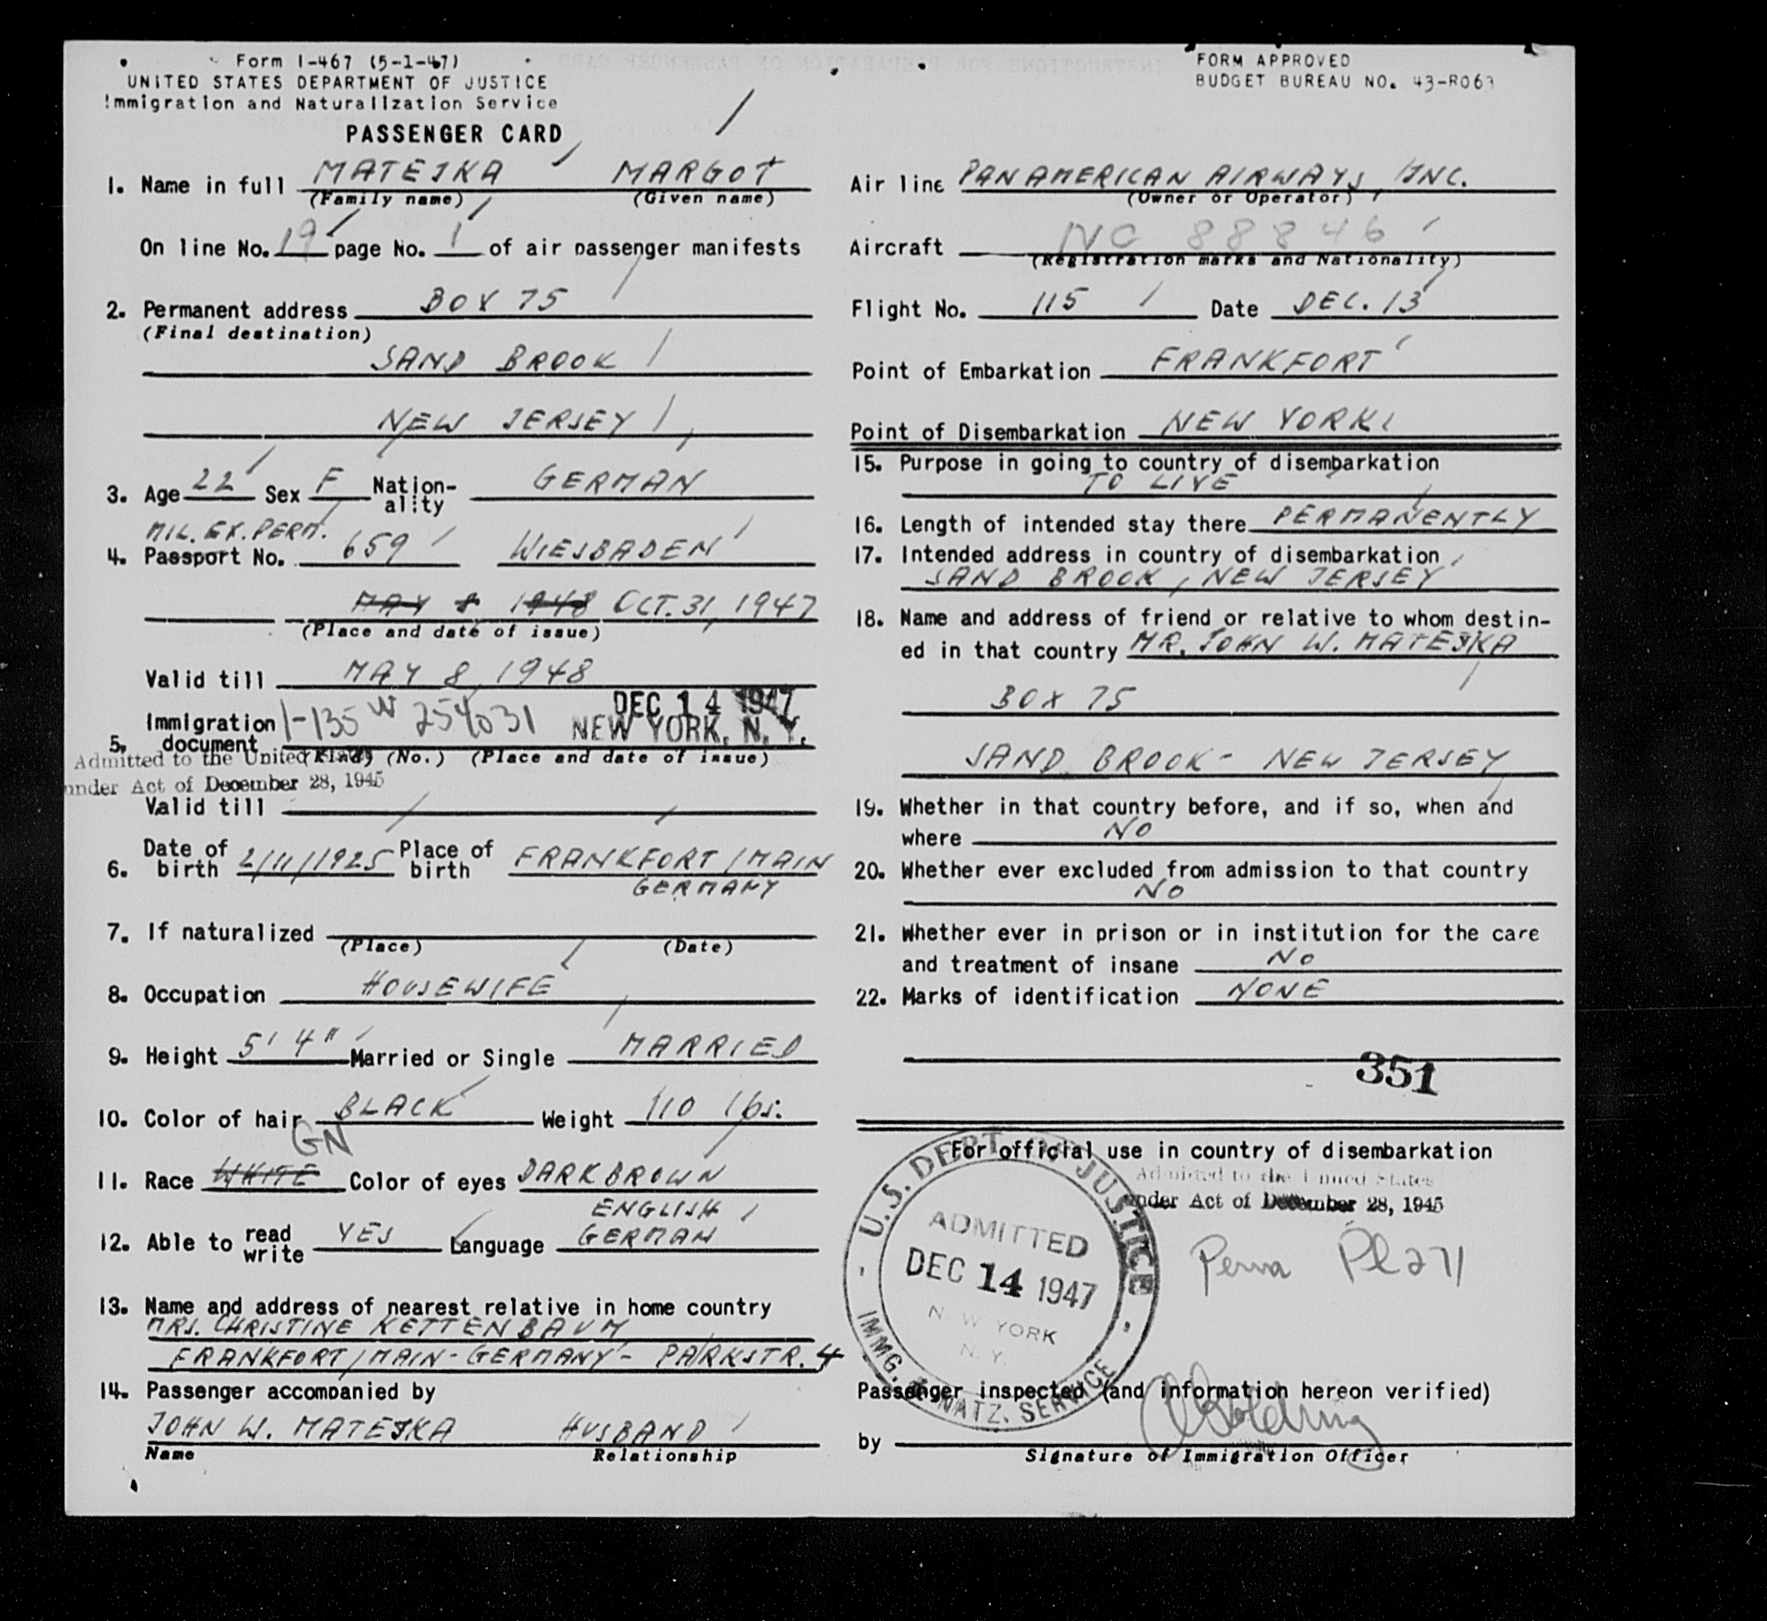 Form I-467 (5-1-47)
UNITED STATES DEPARTMENT OF JUSTICE
Immigration and Naturalization Service
PASSENGER CARD
1. Name in full MATEJKA MARGOT
(Family name) (Given name)
On line No. 19 page No. 1 of air passenger manifests
2. Permanent address BOX 75
(Final destination)
SAND BROOK
NEW JERSEY
3. Age 22 Sex F Nation-ality GERMAN
MIL. EX. PERM.
4. Passport No. 659 WIESBADEN
MAY 8 1948 OCT. 31, 1947
(Place and date of issue)
Valid till MAY 8, 1948
DEC 14 1947
5. Immigration document I-135 W 254031 NEW YORK, N. Y.
(Kind) (No.) (Place and date of issue)
Admitted to the United States
under Act of December 28, 1945
Valid till
6. Date of birth 2/11/1925 Place of birth FRANKFORT/MAIN
GERMANY
7. If naturalized
(Place) (Date)
8. Occupation HOUSEWIFE
9. Height 5' 4" Married or Single MARRIED
10. Color of hair BLACK Weight 110 lbs.
GN
11. Race WHITE Color of eyes DARKBROWN
ENGLISH
12. Able to read write YES Language GERMAN
13. Name and address of nearest relative in home country
MRS. CHRISTINE KETTENBAUM
FRANKFORT/MAIN - GERMANY - PARKSTR. 4
14. Passenger accompanied by
JOHN W. MATEJKA HUSBAND
Name Relationship
FORM APPROVED
BUDGET BUREAU NO. 43-R063
Air line PANAMERICAN AIRWAYS, INC.
(Owner or Operator)
Aircraft NC 88846
(Registration marks and Nationality)
Flight No. 115 Date DEC. 13
Point of Embarkation FRANKFORT
Point of Disembarkation NEW YORK
15. Purpose in going to country of disembarkation
TO LIVE
16. Length of intended stay there PERMANENTLY
17. Intended address in country of disembarkation
SAND BROOK, NEW JERSEY
18. Name and address of friend or relative to whom destin-
ed in that country MR. JOHN W. MATEJKA
BOX 75
SAND BROOK - NEW JERSEY
19. Whether in that country before, and if so, when and
where NO
20. Whether ever excluded from admission to that country
NO
21. Whether ever in prison or in institution for the care
and treatment of insane NO
22. Marks of identification NONE
351
For official use in country of disembarkation
Admitted to the United States
under Act of December 28, 1945
U.S. DEPT. OF JUSTICE
ADMITTED
DEC 14 1947
NEW YORK
N. Y.
IMMG. & NATZ. SERVICE
Passenger inspected (and information hereon verified)
by
Signature of Immigration Officer